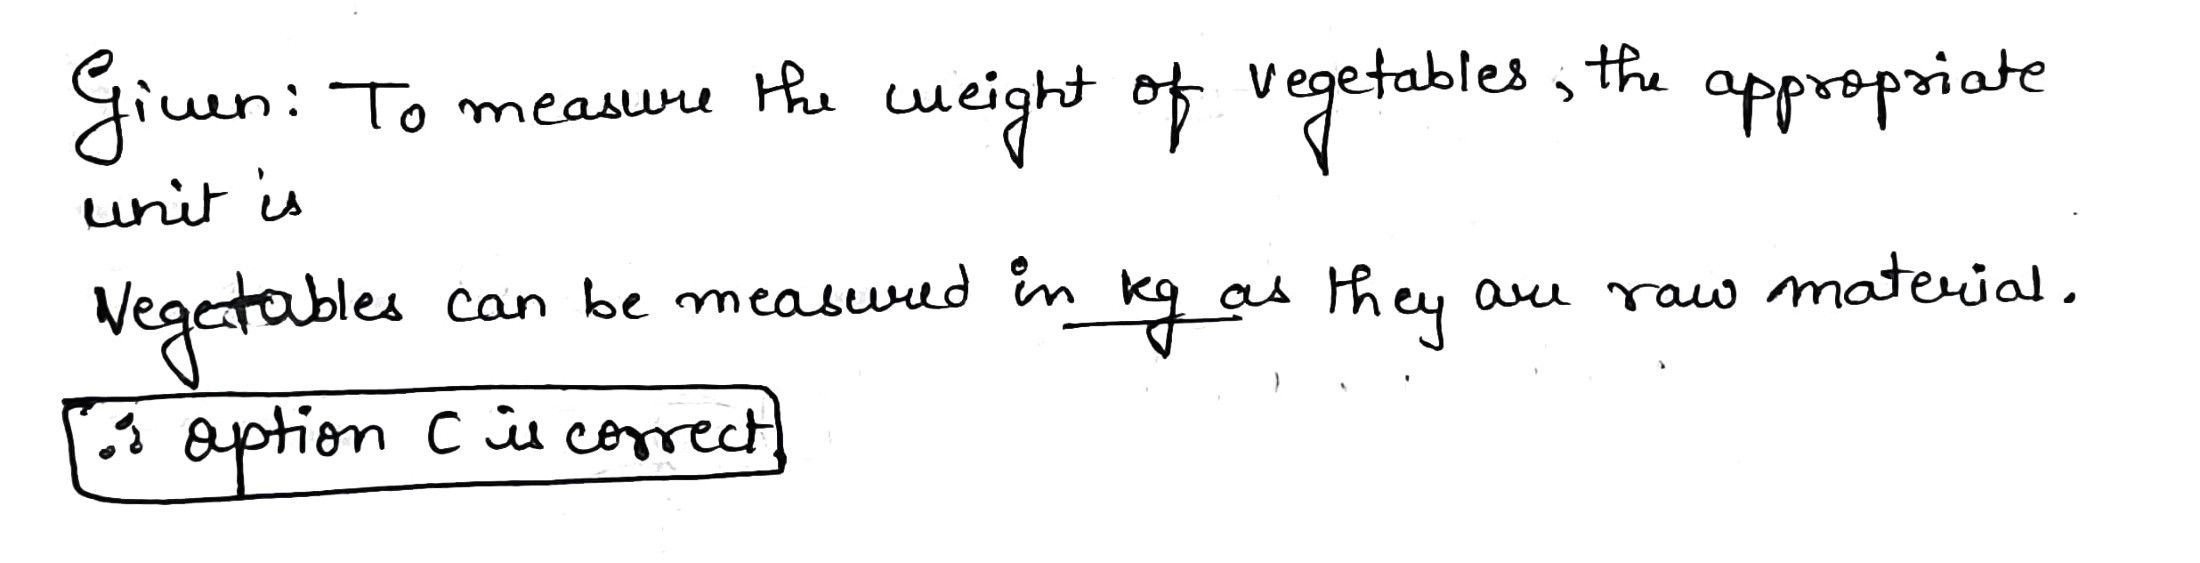 Given: To measure the weight of vegetables, the appropriate
unit is
Vegetables can be measured in kg as they are raw material.
∴ option C is correct.